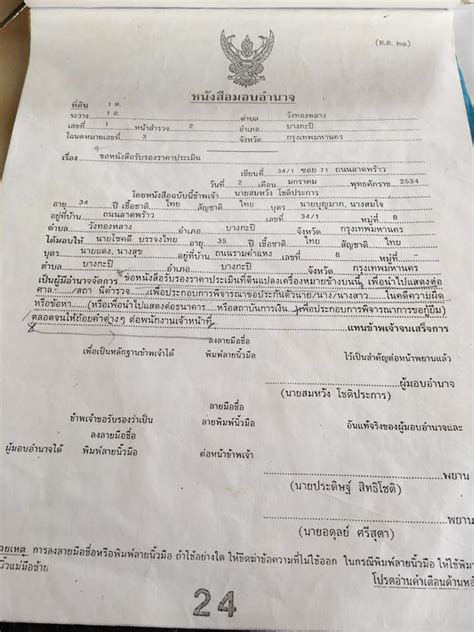 (ท.ด. ๒๑)
หนังสือมอบอำนาจ
ที่ดิน 1 ต.
ระวาง 1 อ. ตำบล วังทองหลาง
เลขที่ 1 หน้าสำรวจ 2 อำเภอ บางกะปิ
โฉนดหมายเลขที่ 3 จังหวัด กรุงเทพมหานคร
เรื่อง ขอหนังสือรับรองราคาประเมิน
เขียนที่ 34/1 ซอย 71 ถนนลาดพร้าว
วันที่ 2 เดือน มกราคม พุทธศักราช 2534
โดยหนังสือฉบับนี้ข้าพเจ้า นายสมหวัง โชติประการ
อายุ 34 ปี เชื้อชาติ ไทย สัญชาติ ไทย บุตร นายบุญมาก, นางสมใจ
อยู่ที่บ้าน ถนนลาดพร้าว เลขที่ 34/1 หมู่ที่ 8
ตำบล วังทองหลาง อำเภอ บางกะปิ จังหวัด กรุงเทพมหานคร
ได้มอบให้ นายโชคดี บรรจงไทย อายุ 35 ปี เชื้อชาติ ไทย สัญชาติ ไทย
บุตร นายแดง, นางสุข อยู่ที่บ้าน ถนนรามคำแหง หมู่ที่ 8
ตำบล บางกะปิ อำเภอ บางกะปิ จังหวัด กรุงเทพมหานคร
เป็นผู้มีอำนาจจัดการ ขอหนังสือรับรองราคาประเมินที่ดินแปลงเครื่องหมายข้างบนนี้ เพื่อนำไปแสดงต่อ
ศาล.../สถานีตำรวจ... เพื่อประกอบการพิจารณาขอประกันตัวนาย/นาง/นางสาว... ในคดีความผิด
หรือข้อหา... (หรือเพื่อนำไปแสดงต่อธนาคาร... หรือสถาบันการเงิน เพื่อประกอบการพิจารณาการขอกู้ยืม)
ตลอดจนให้ถ้อยคำต่างๆ ต่อพนักงานเจ้าหน้าที่ แทนข้าพเจ้าจนเสร็จการ
ลงลายมือชื่อ
เพื่อเป็นหลักฐานข้าพเจ้าได้ พิมพ์ลายนิ้วมือ ไว้เป็นสำคัญต่อหน้าพยานแล้ว
ผู้มอบอำนาจ
(นายสมหวัง โชติประการ)
ลายมือชื่อ
ข้าพเจ้าขอรับรองว่าเป็น ลายพิมพ์นิ้วมือ อันแท้จริงของผู้มอบอำนาจและ
ลงลายมือชื่อ
ผู้มอบอำนาจได้ พิมพ์ลายนิ้วมือ ต่อหน้าข้าพเจ้า
พยาน
(นายประดิษฐ์ สิทธิโชติ)
พยาน
(นายอดุลย์ ศรีสุดา)
ายเหตุ การลงลายมือชื่อหรือพิมพ์ลายนิ้วมือ ถ้าใช้อย่างใด ให้ขีดฆ่าข้อความที่ไม่ใช้ออก ในกรณีพิมพ์ลายนิ้วมือ ให้ใช้พิม
นิ้วแม่มือซ้าย โปรดอ่านคำเตือนด้านหลั
24